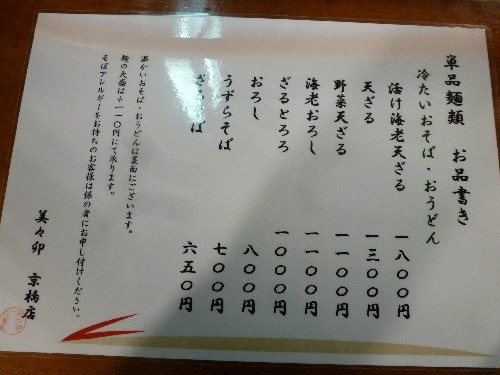 単品麺類 お品書き
冷たいおそば・おうどん
活け海老天ざる 一八〇〇円
天ざる 一三〇〇円
野菜天ざる 一一〇〇円
海老おろし 一一〇〇円
ざるとろろ 一〇〇〇円
おろし 八〇〇円
うずらそば 七〇〇円
ざるそば 六五〇円
温かいおそば・おうどんは裏面にございます。
麺の大盛は+一一〇円にて承ります。
そばアレルギーをお持ちのお客様は係の者にお申し付けください。
美々卯 京橋店